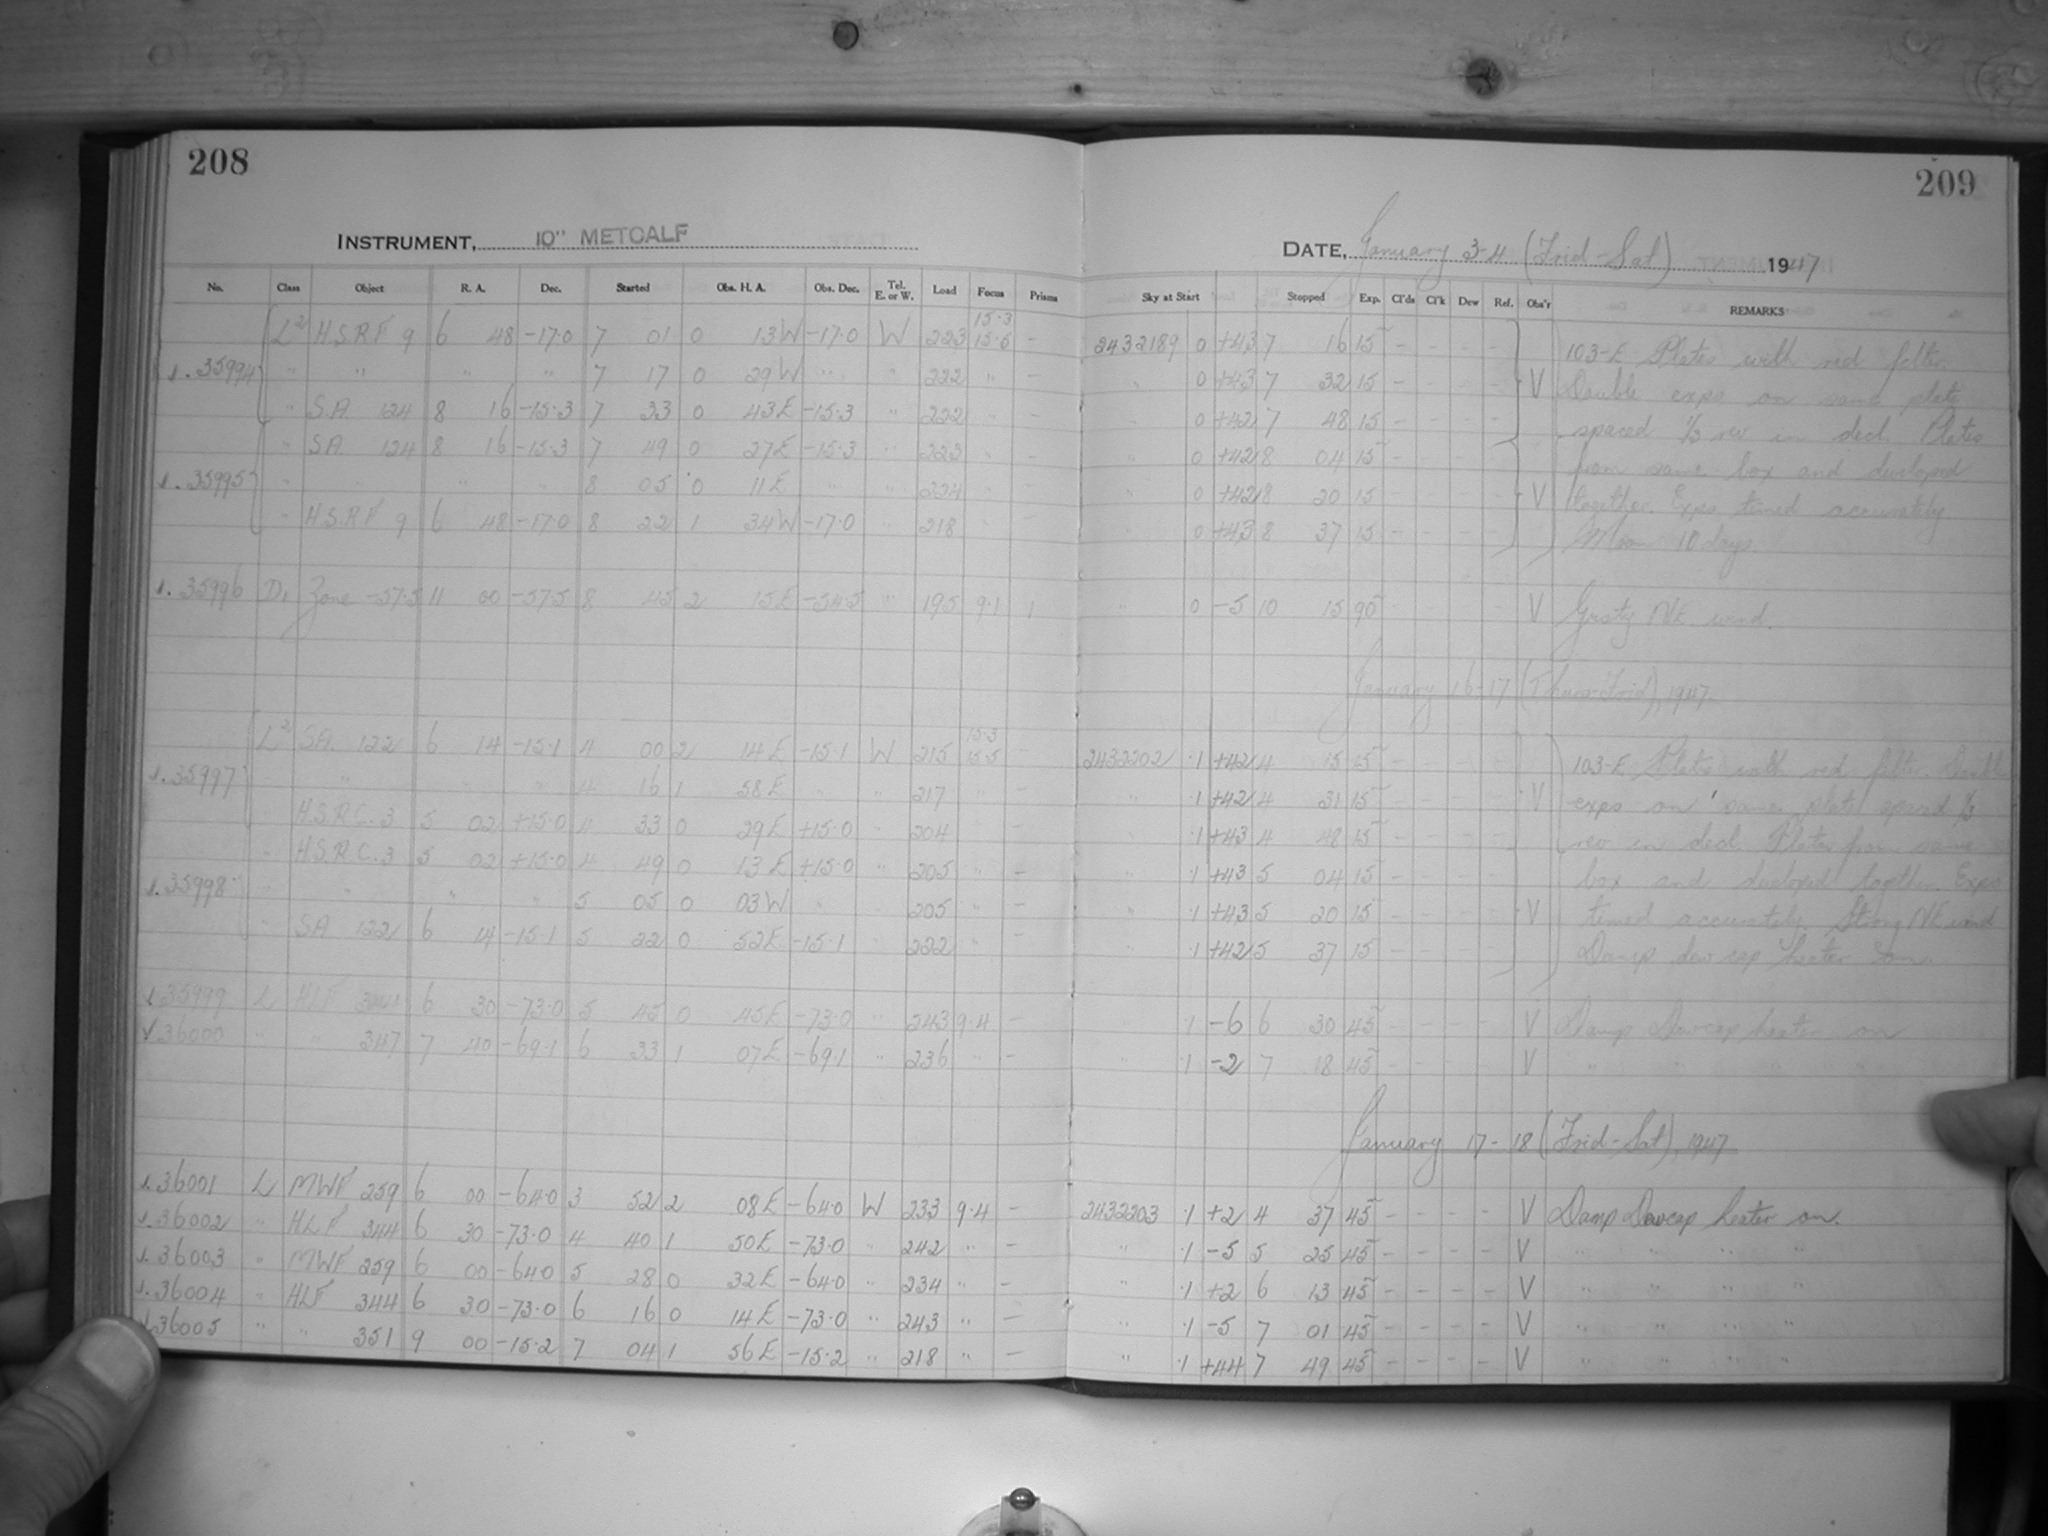 208
INSTRUMENT, 10" METCALF
No. Class Object R. A. Dec. Started Obs. H. A. Obs. Dec. Tel. E. or W. Load Focus Prisms
L2 H.S.R.F 9 6 48 -17.0 7 01 0 13W -17.0 W 223 15.3 15.5 -
35994 " " " " 7 17 0 29W " " 222 " -
" S.A. 124 8 16 -15.3 7 33 0 43E -15.3 " 222 -
" S.A. 124 8 16 -15.3 7 49 0 27E -15.3 " 223 -
35995 " " " 8 05 0 11E " " 224 -
" H.S.R.F 9 6 48 -17.0 8 22 1 34W -17.0 " 218
35996 D1 Zone -57.5 11 00 -57.5 8 45 2 15E -54.5 " 195 9.1 1
L2 S.A. 122 6 14 -15.1 4 00 2 14E -15.1 W 215 15.3 15.5 -
35997 " " " 4 16 1 58E " " 217 " -
H.S.R.C. 3 5 02 +15.0 4 33 0 29E +15.0 " 204 -
" H.S.R.C. 3 5 02 +15.0 4 49 0 13E +15.0 " 205 " -
35998 " " " " 5 05 0 03W " " 205 " -
" S.A 122 6 14 -15.1 5 22 0 52E -15.1 " 222 -
35999 L HLF 344 6 30 -73.0 5 45 0 45E -73.0 " 243 9.4 -
36000 " " 347 7 40 -69.1 6 33 1 07E -69.1 " 236 " -
36001 L MWF 259 6 00 -64.0 3 52 2 08E -64.0 W 233 9.4 -
36002 " HLF 344 6 30 -73.0 4 40 1 50E -73.0 " 242 " -
36003 " MWF 259 6 00 -64.0 5 28 0 32E -64.0 " 234 " -
36004 " HLF 344 6 30 -73.0 6 16 0 14E -73.0 " 243 " -
36005 " " 351 9 00 -15.2 7 04 1 56E -15.2 " 218 " -
209
DATE, January 3-4 (Frid-Sat) 1947
Sky at Start Stopped Exp. Cl'ds Cl'k Dew Ref. Obs'r REMARKS
2432189 0 +43 7 16 15 - - - - 103-E Plates with red filter
" 0 +43 7 32 15 - - - - V Double expo on same plate
" 0 +42 7 48 15 - - - - spaced 1/3 rev in decl. Plates
" 0 +42 8 04 15 - - - - from same box and developed
" 0 +42 8 20 15 - - - - V together. Expo timed accurately
0 +43 8 37 15 - - - - Moon 10 days.
" 0 -5 10 15 90 - - - - V Gusty NE. wind.
January 16-17 (Thurs-Frid), 1947.
2432202 .1 +42 4 15 15 - - - - 103-E Plates with red filter. Double
" .1 +42 4 31 15 - - - - V expo on same plate spaced 1/3
" .1 +43 4 48 15 - - - - rev in decl. Plates from same
" .1 +43 5 04 15 - - - - box and developed together. Expo
" .1 +43 5 20 15 - - - - V timed accurately. Strong NE wind
" .1 +42 5 37 15 - - - - Damp dew cap heater on.
" .1 -6 6 30 45 - - - - V Damp Dewcap heater on
" .1 -2 7 18 45 - - - - V " " " "
January 17-18 (Frid-Sat), 1947
2432203 .1 +2 4 37 45 - - - - V Damp Dewcap heater on.
" .1 -5 5 25 45 - - - - V " " " "
" .1 +2 6 13 45 - - - - V " " " "
" .1 -5 7 01 45 - - - - V " " " "
" .1 +44 7 49 45 - - - - V " " " "